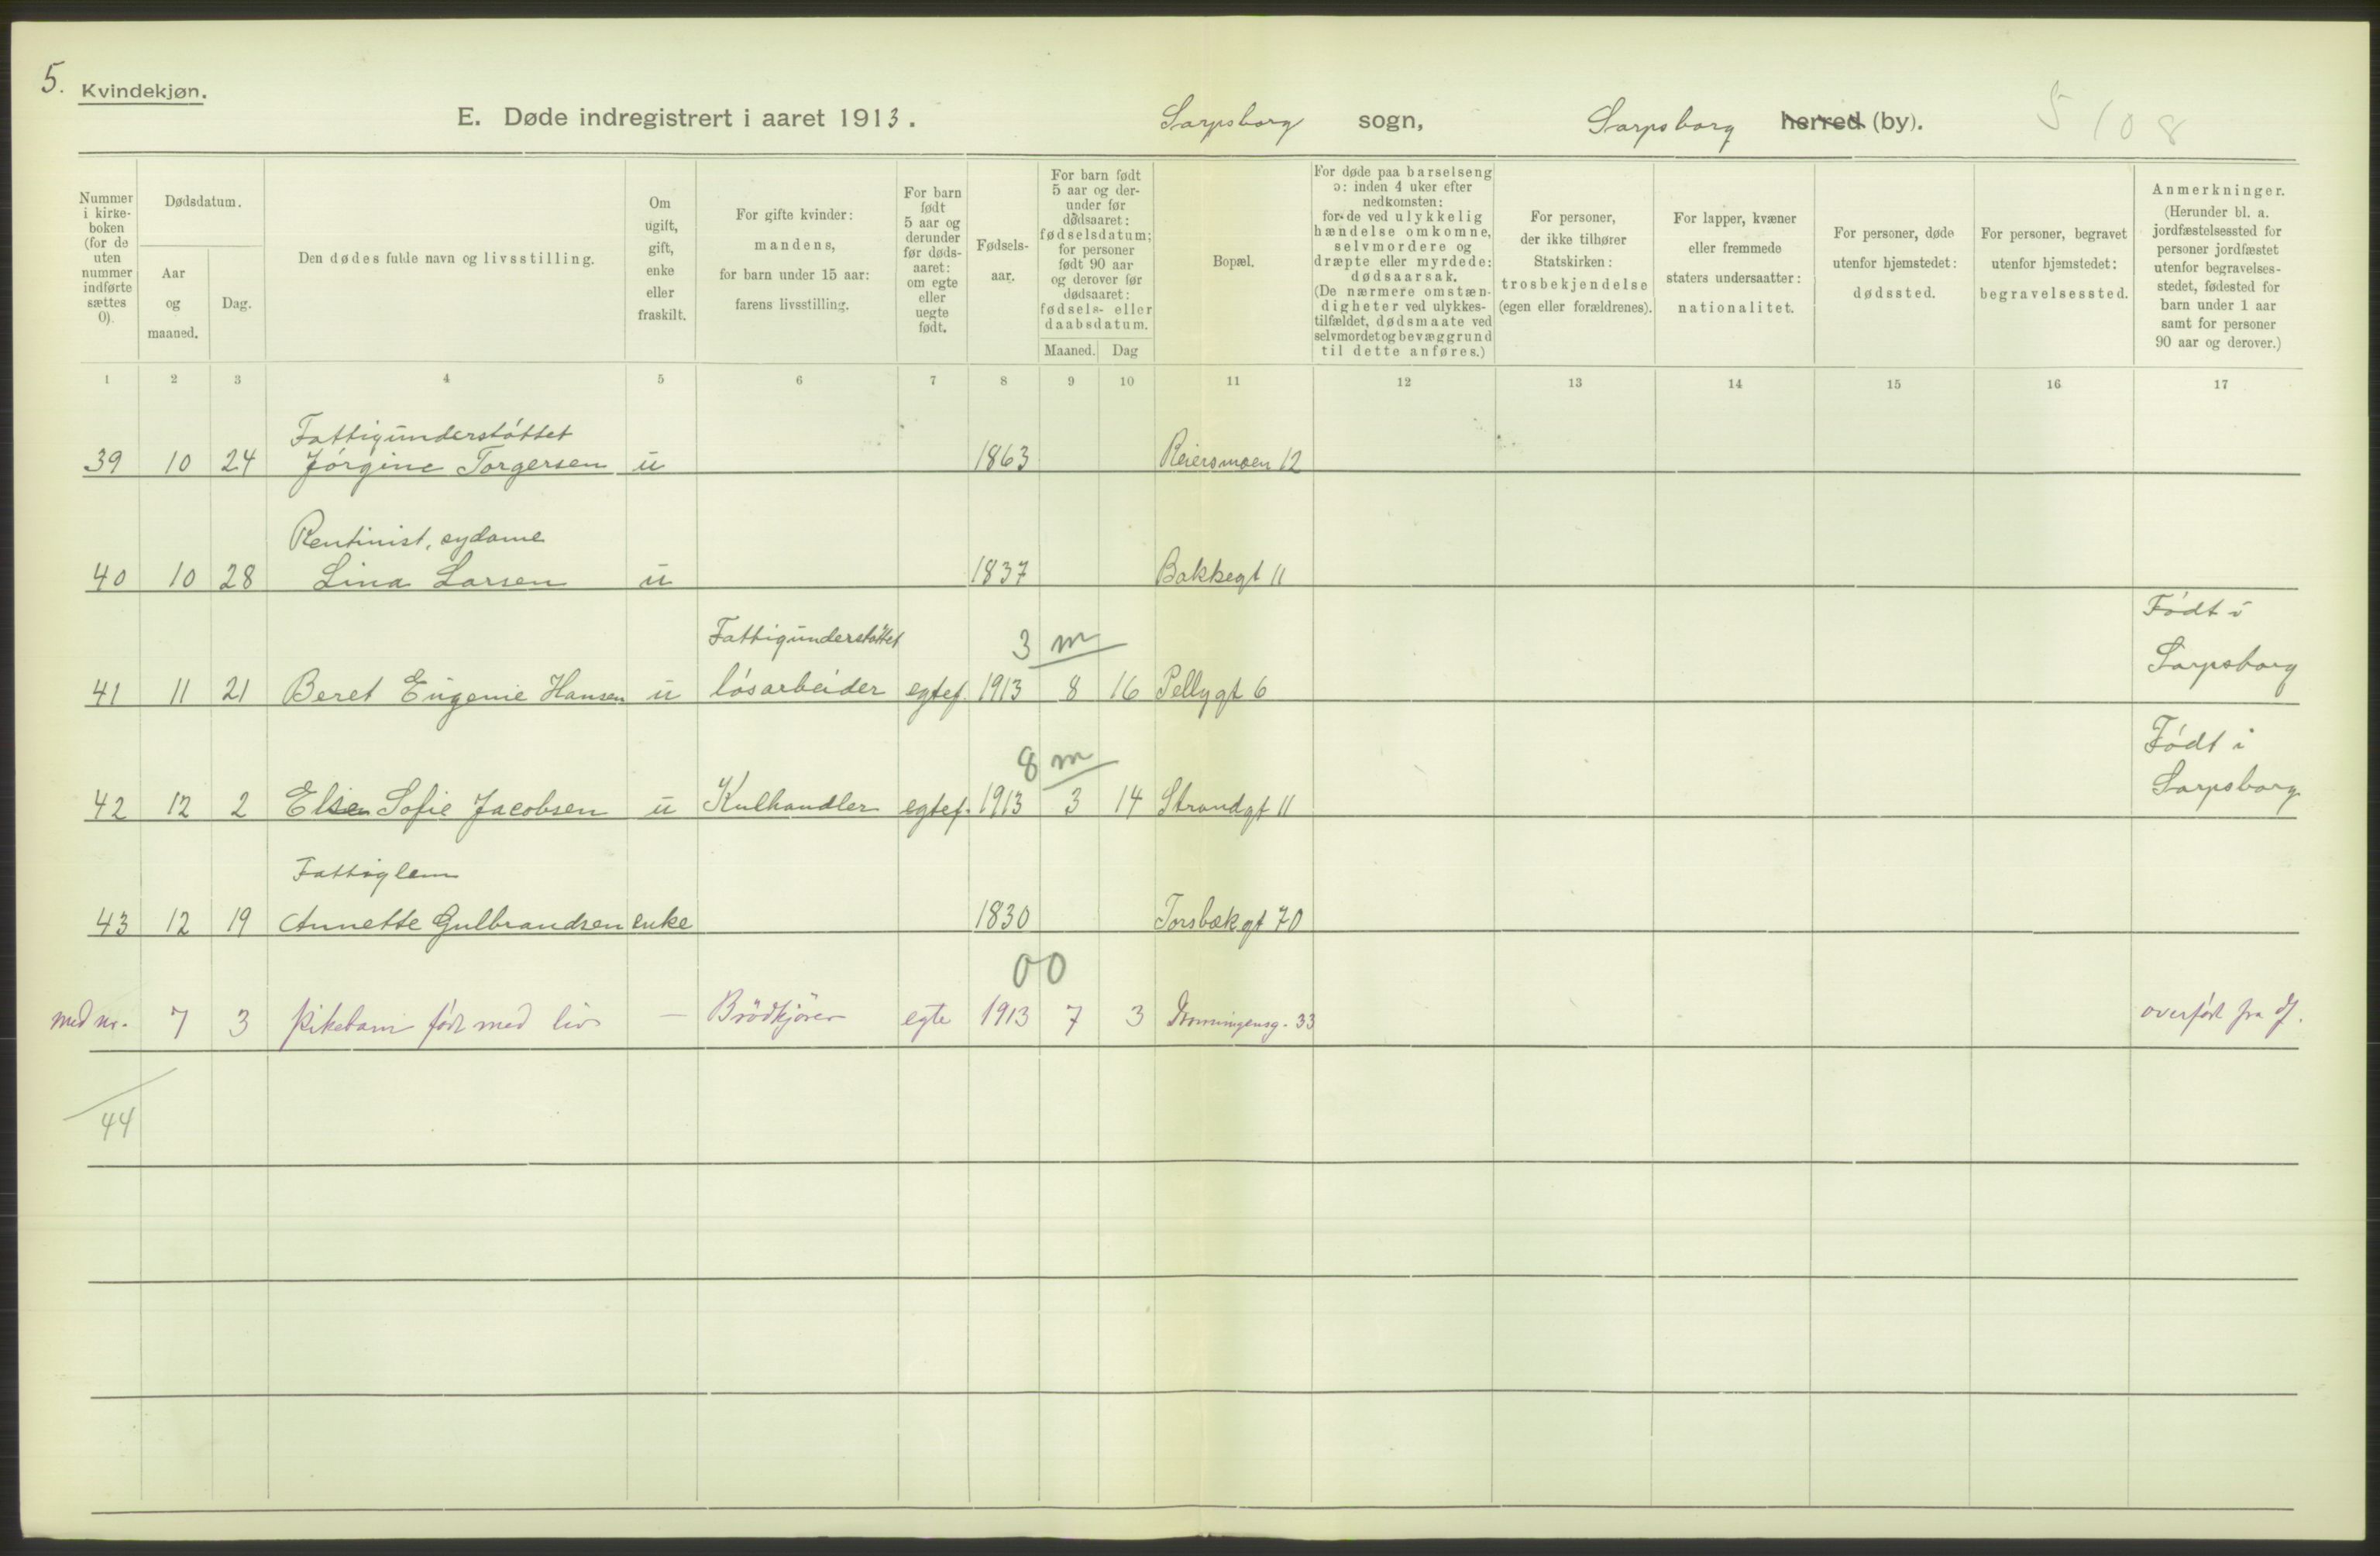 5. Kvindekjøn.
E. Døde indregistrert i aaret 1913. Sarpsborg sogn, Sarpsborg herred (by). 5 108
Nummer i kirke-boken (for de uten nummer indførte sættes 0).
Dødsdatum.
Aar og maaned.
Dag.
Den dødes fulde navn og livsstilling.
Om ugift, gift, enke eller fraskilt.
For gifte kvinder: mandens, for barn under 15 aar: farens livsstilling.
For barn født 5 aar og derunder før døds-aaret: om egte eller uegte født.
Fødsels-aar.
For barn født 5 aar og der-under før dødsaaret: fødselsdatum; for personer født 90 aar og derover før dødsaaret: fødsels- eller daabsdatum.
Maaned. Dag
Bopæl.
For døde paa barselseng ɔ: inden 4 uker efter nedkomsten: for de ved ulykkelig hændelse omkomne, selvmordere og dræpte eller myrdede: dødsaarsak. (De nærmere omstæn-digheter ved ulykkes-tilfældet, dødsmaate ved selvmordet og bevæggrund til dette anføres.)
For personer, der ikke tilhører Statskirken: trosbekjendelse (egen eller forældrenes).
For lapper, kvæner eller fremmede staters undersaatter: nationalitet.
For personer, døde utenfor hjemstedet: dødssted.
For personer, begravet utenfor hjemstedet: begravelsessted.
Anmerkninger. (Herunder bl. a. jordfæstelsessted for personer jordfæstet utenfor begravelses-stedet, fødested for barn under 1 aar samt for personer 90 aar og derover.)
1 2 3 4 5 6 7 8 9 10 11 12 13 14 15 16 17
Fattigunderstøttet
39 10 24 Jørgine Torgersen u 1863 Reiersmoen 12
Rentinist, sydame
40 10 28 Lina Larsen u 1837 Bakkegt 11
Fattigunderstøttet 3 m Født i
41 11 21 Beret Eugenie Hansen u løsarbeider egtef. 1913 8 16 Pellygt 6 Sarpsborg
8 m Født i
42 12 2 Elsen Sofie Jacobsen u Kulhandler egtef. 1913 3 14 Strandgt 11 Sarpsborg
Fattiglem
43 12 19 Annette Gulbrandsen enke 1830 Torsbækgt 70
00
med nr. 7 3 Pikebarn født med liv — Brödkjörer egte 1913 7 3 Dronningensg. 33 overført fra
44